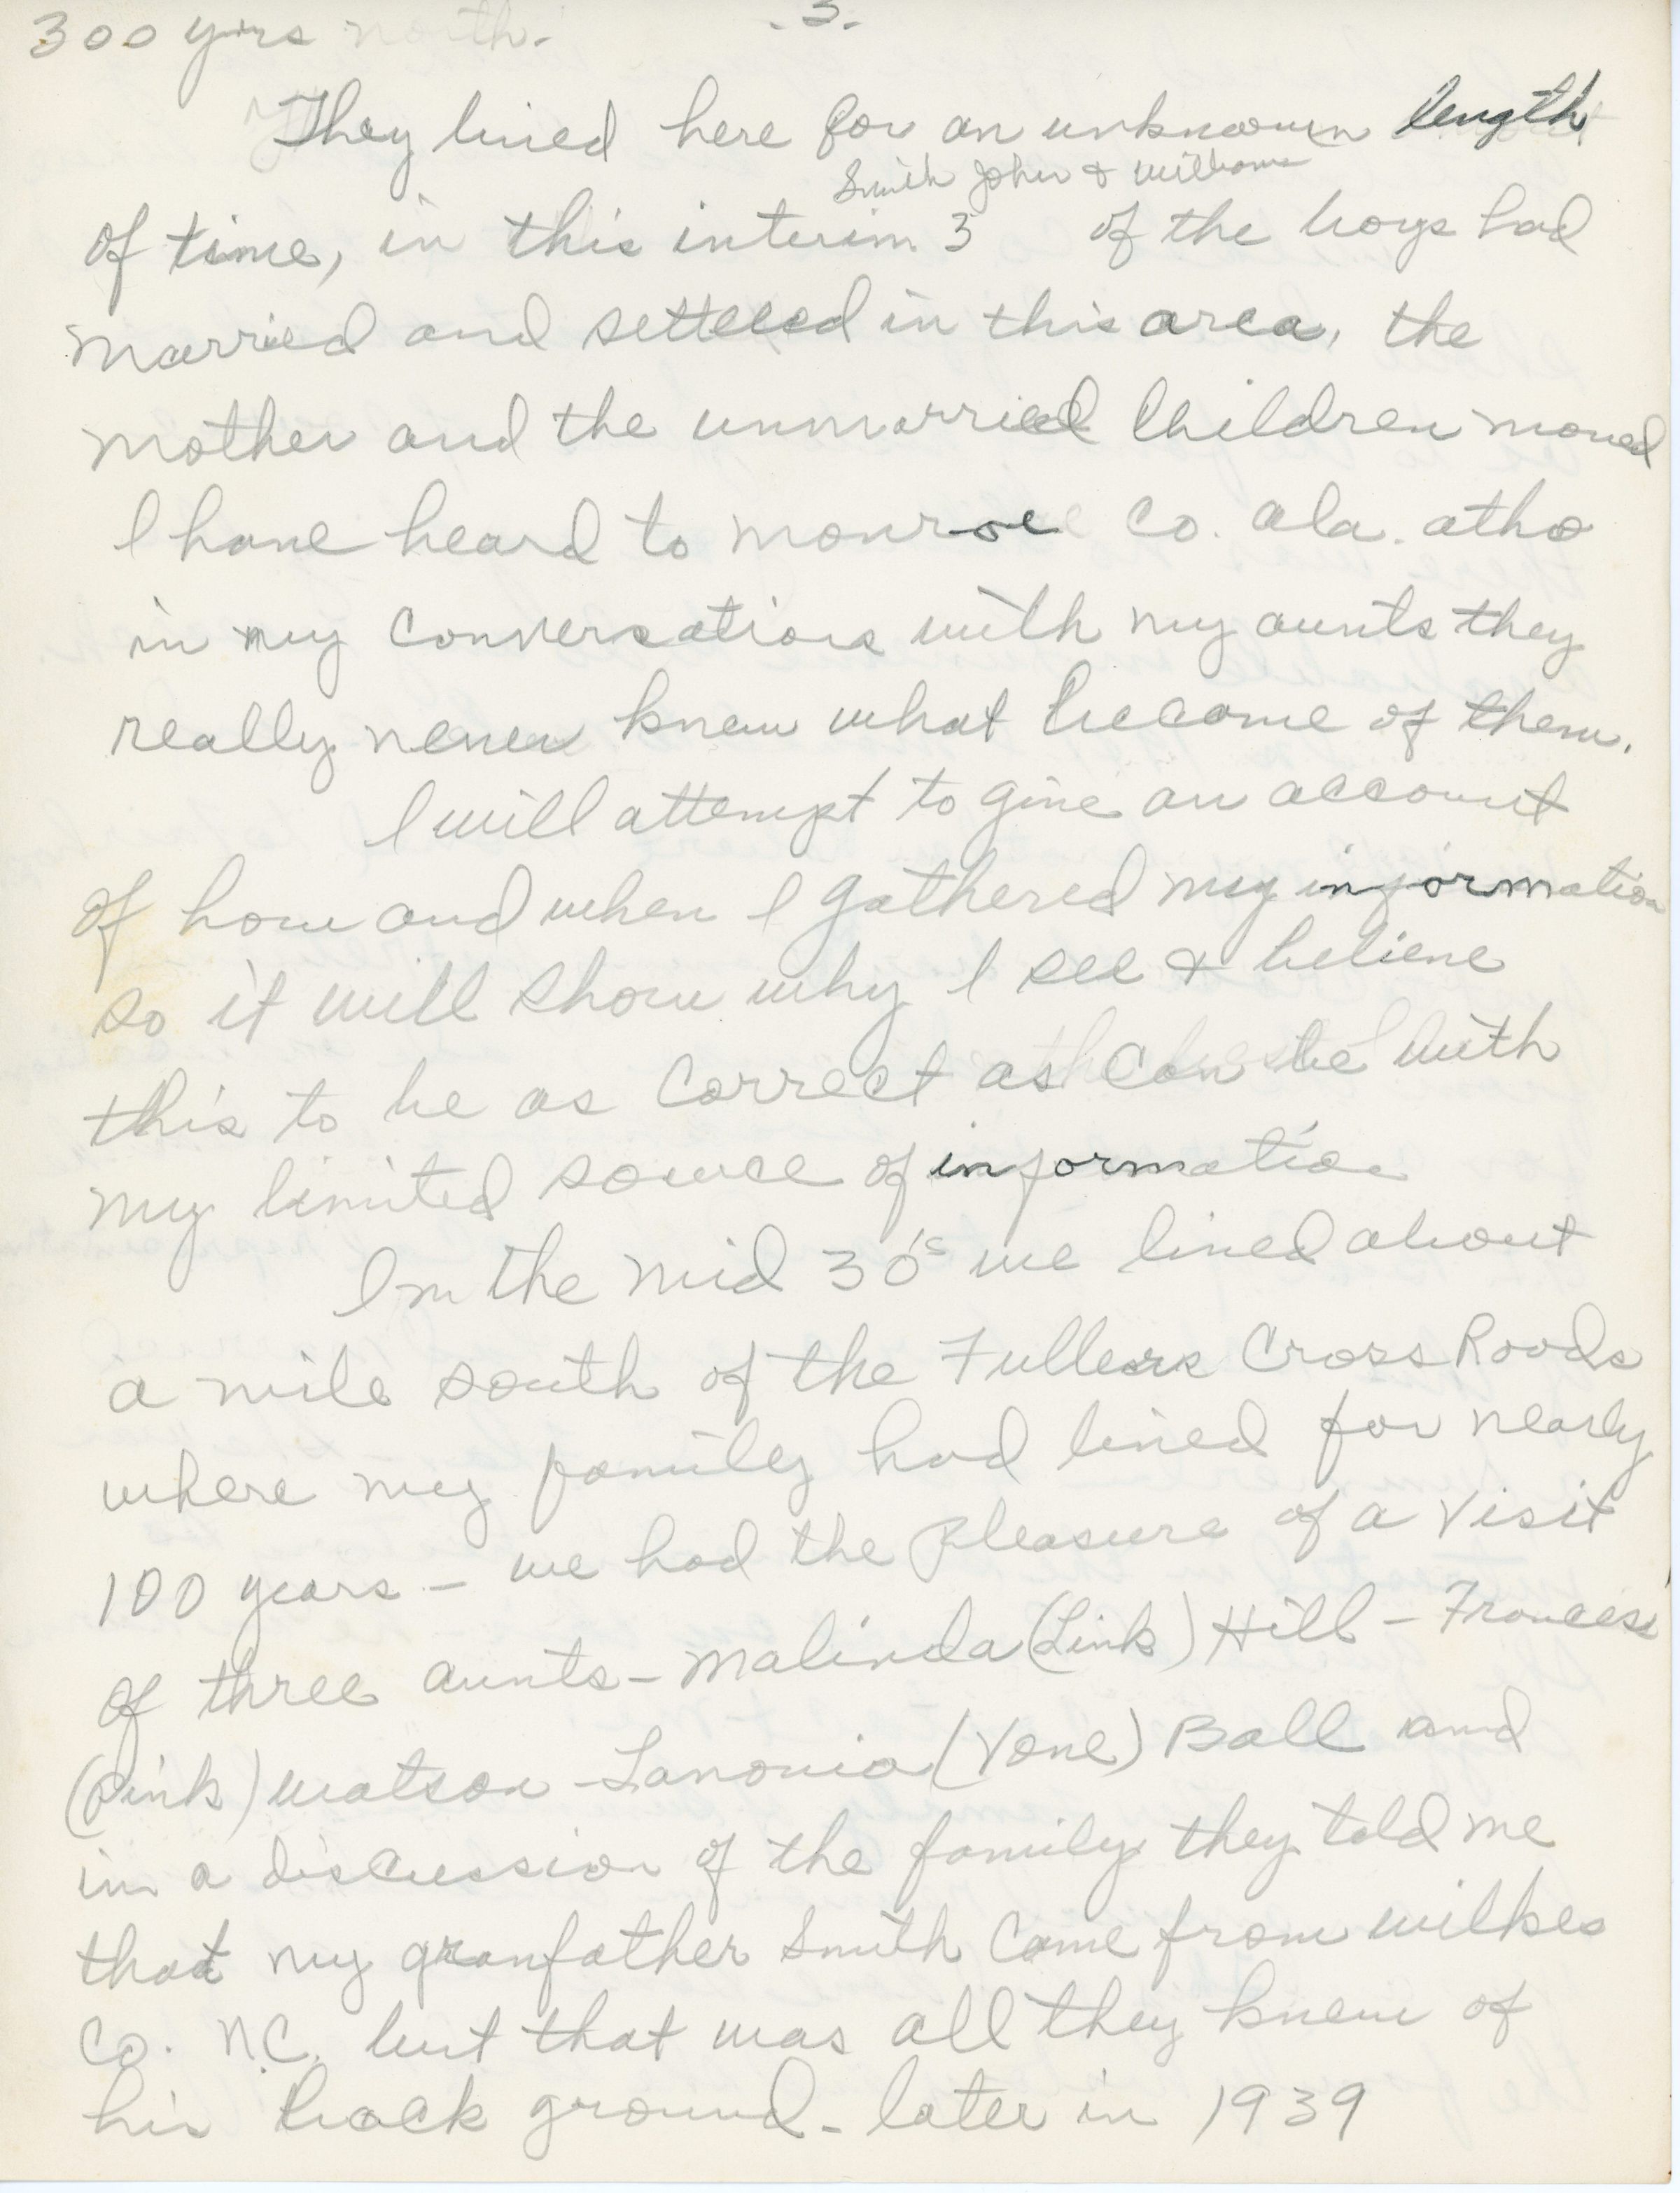 -3-
300 yrs north.
They lived here for an unknown length
Smith John & William
of time, in this interim 3 of the boys had
married and settled in this area, the
mother and the unmarried Children moved
I have heard to monroe Co. Ala. altho
in my conversations with my aunts they
really never knew what become of them.
I will attempt to give an account
of how and when I gathered my information
so it will show why I see & believe
this to be as Correct as Can be with
my limited source of information
In the mid 30's we lived about
a mile south of the Fullers Cross Roads
where my family had lived for nearly
100 years - we had the pleasure of a visit
of three aunts - Malinda (Link) Hill - Frances
(Pink) Watson - Lanonia (Vone) Ball and
in a discussion of the family they told me
that my granfather Smith Come from wilkes
Co. N.C. but that was all they knew of
his back ground - later in 1939